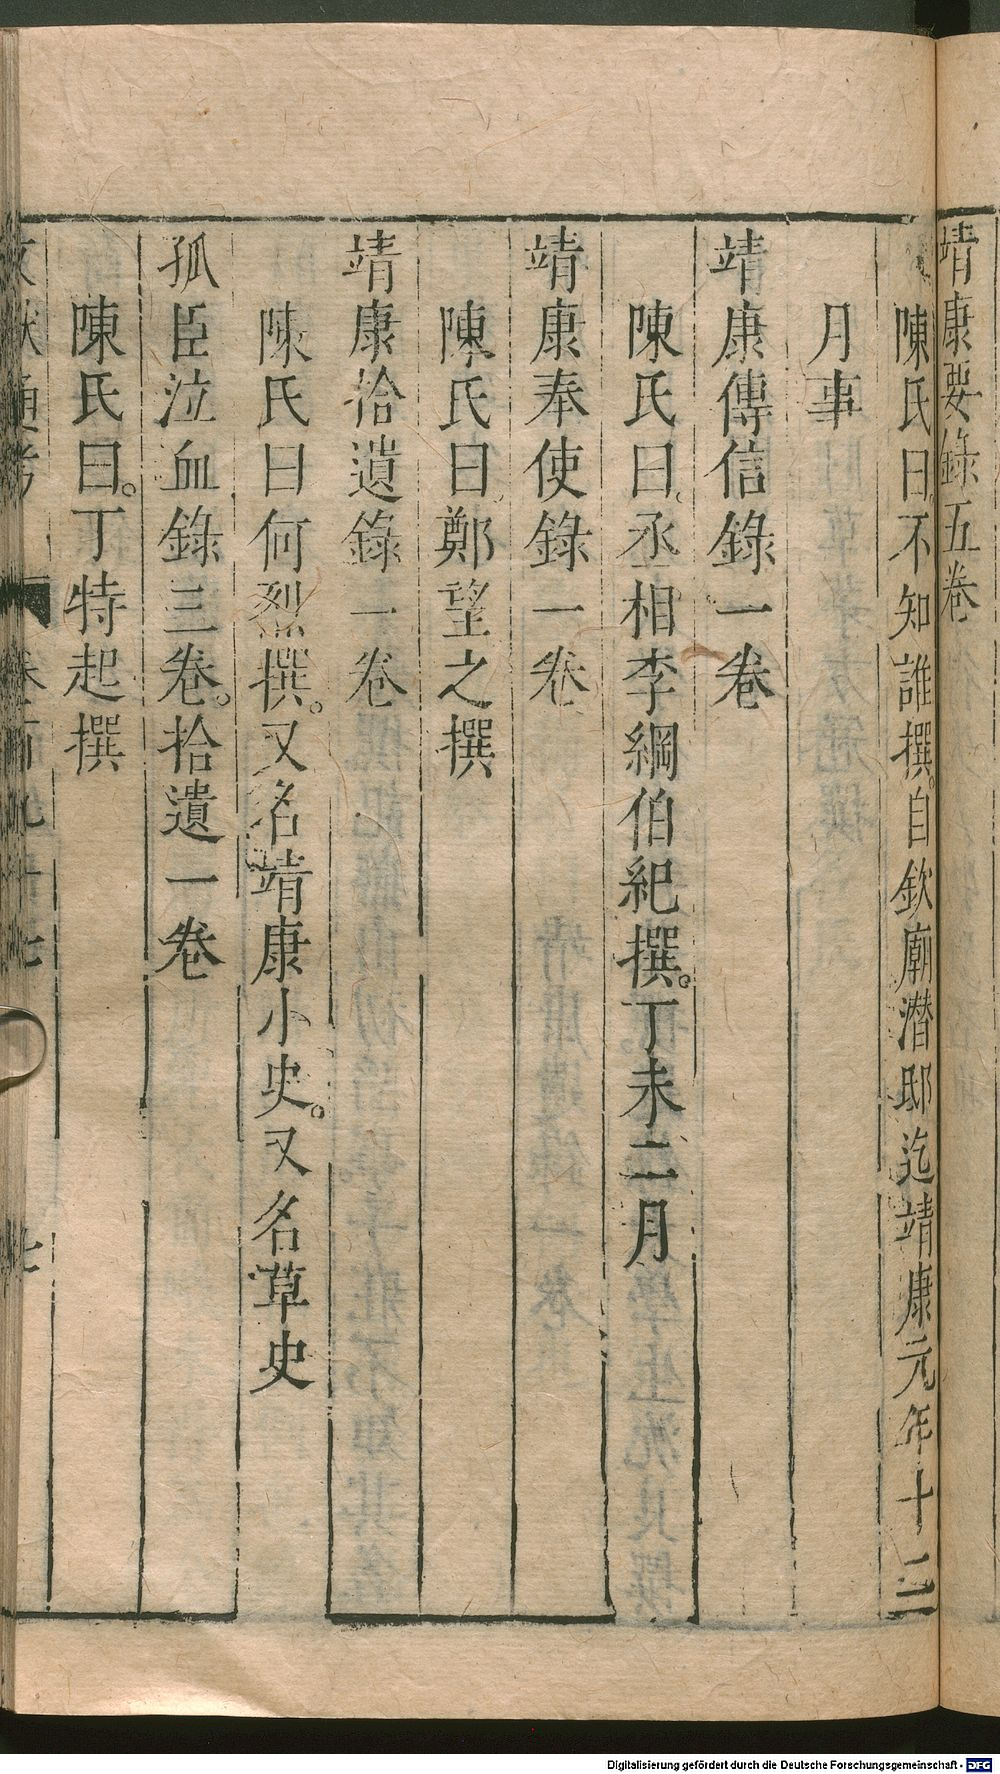 靖康要錄五卷
陳氏曰。不知誰撰。自欽廟潛邸迄靖康元年十二
月事
靖康傳信錄一卷
陳氏曰。丞相李綱伯紀撰。丁未二月
靖康奉使錄一卷
陳氏曰。鄭望之撰
靖康拾遺錄一卷
陳氏曰何烈撰。又名靖康小史。又名草史
孤臣泣血錄三卷。拾遺一卷
陳氏曰。丁特起撰
文獻通考 卷百九十七 七
Digitalisierung gefördert durch die Deutsche Forschungsgemeinschaft - DFG